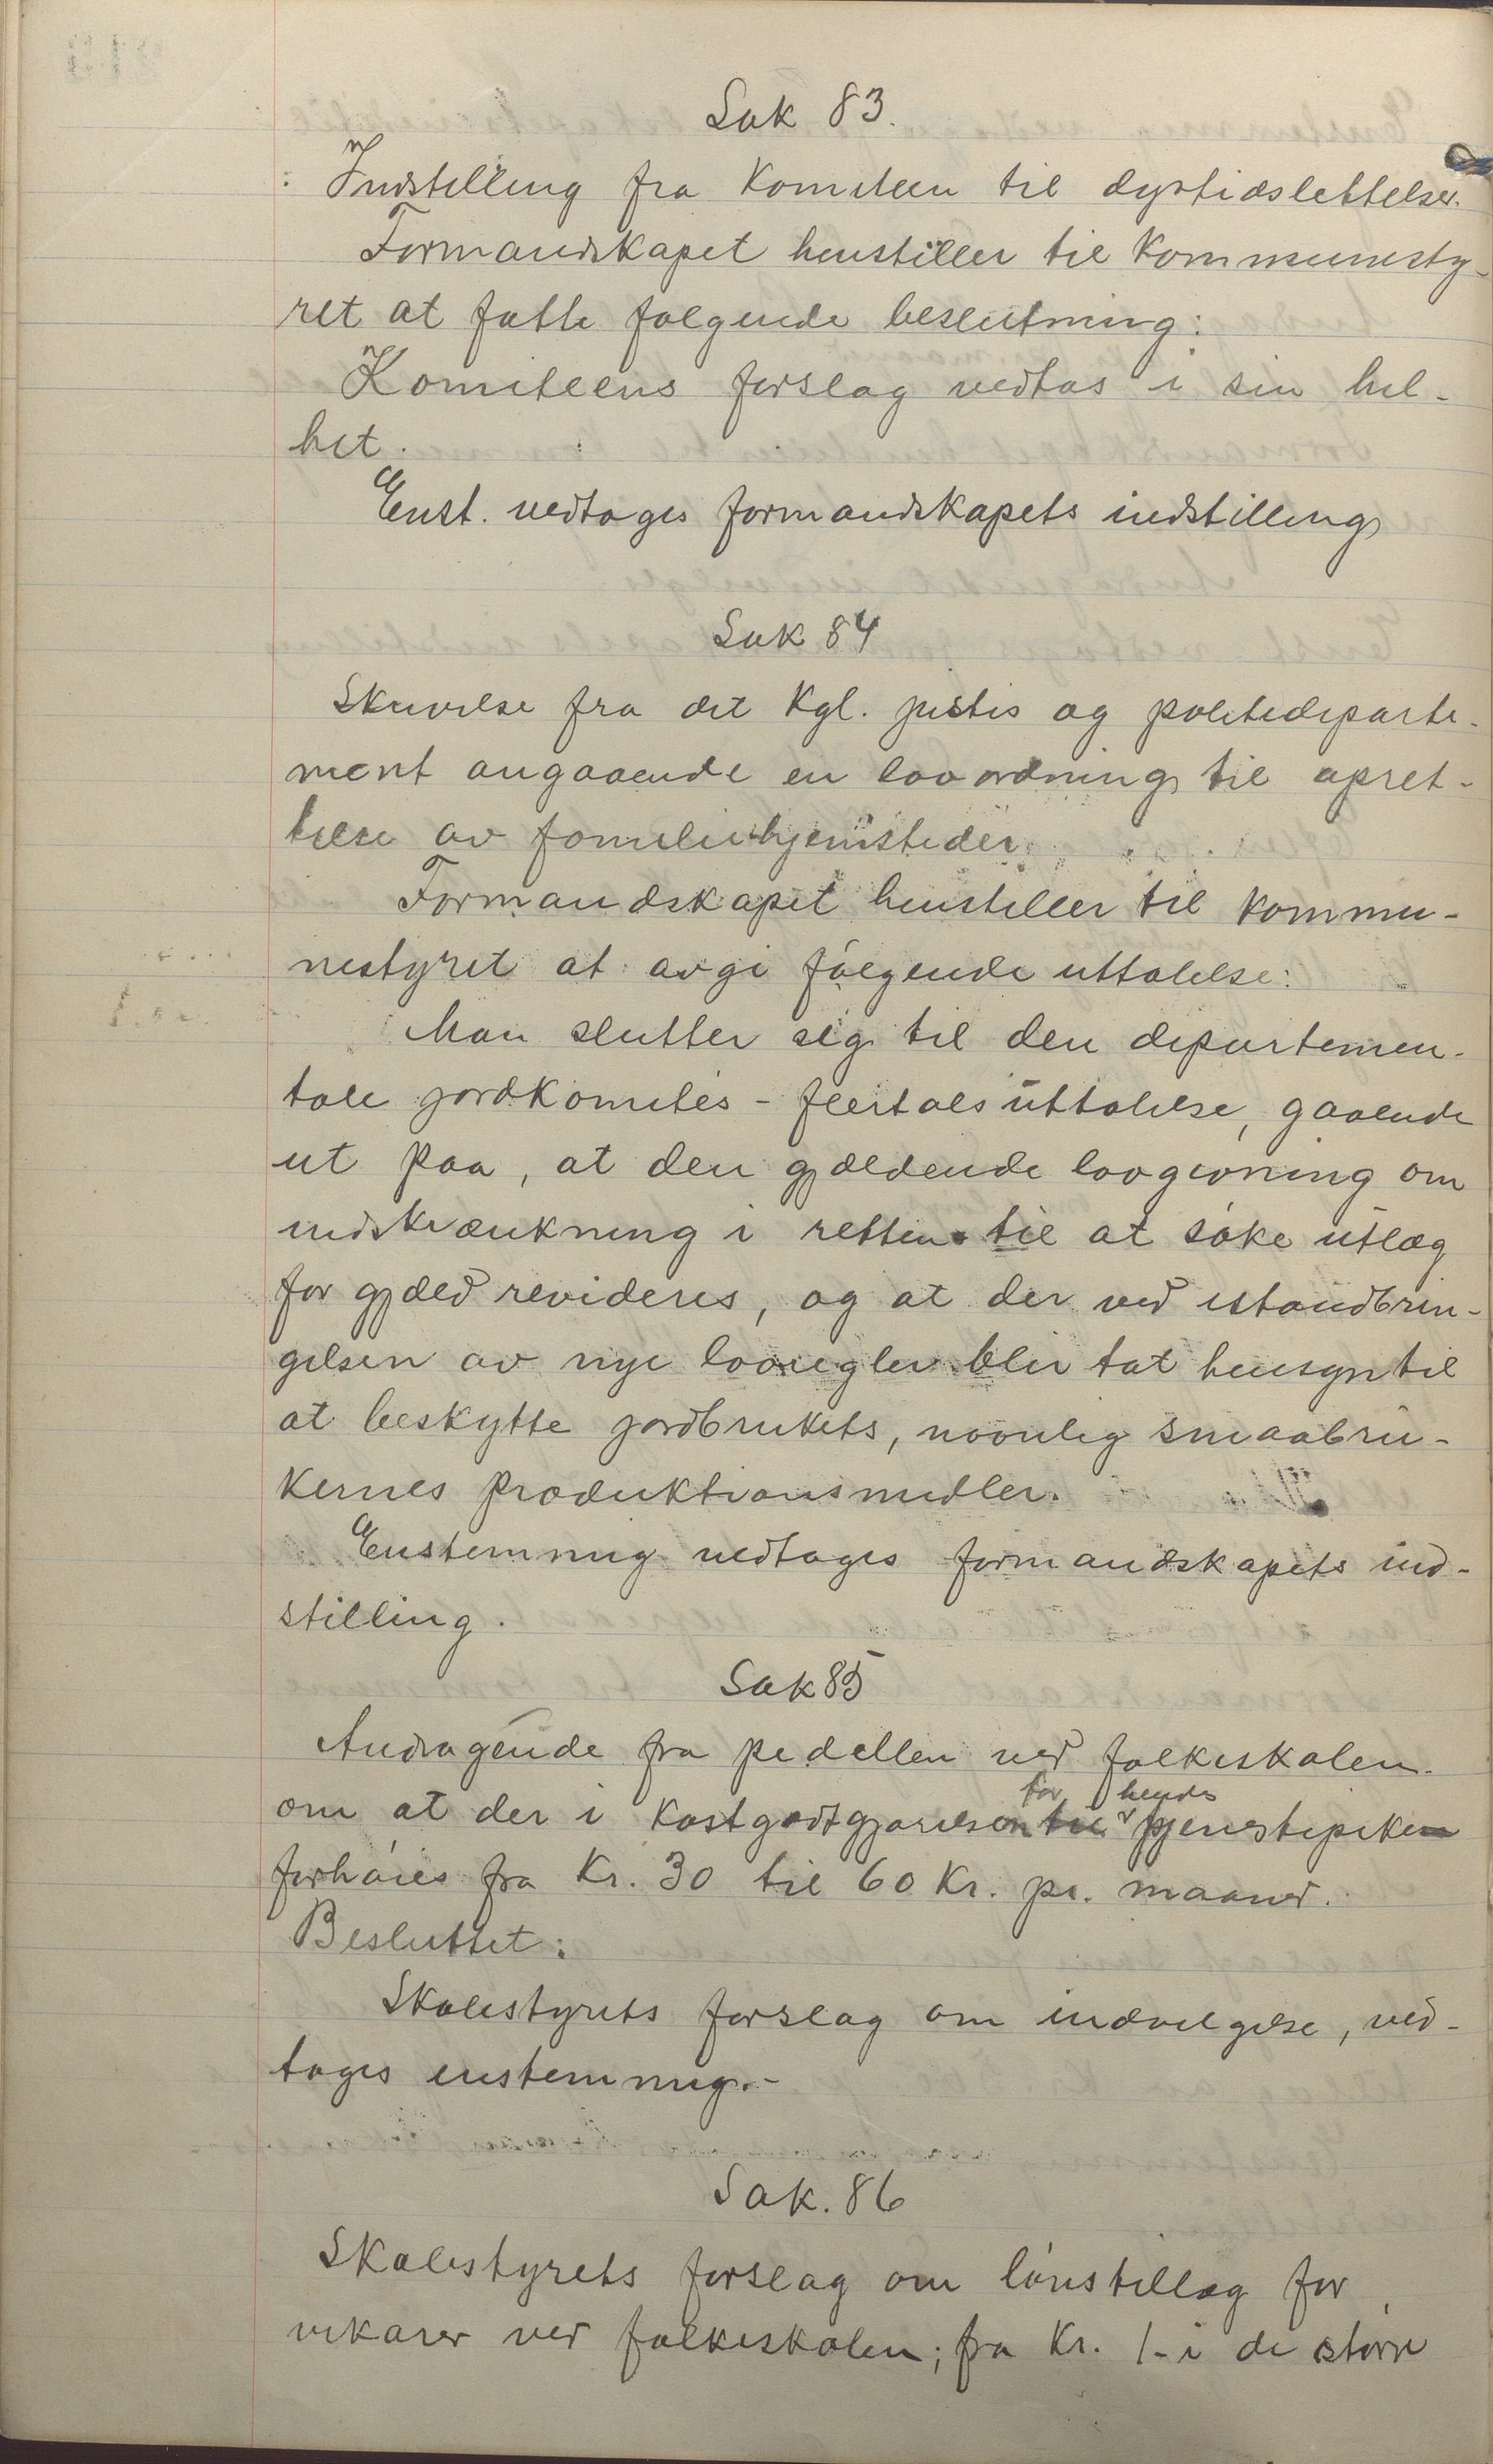 Sak 83.
Indstilling fra Komiteen til dyrtidslettelser.
Formandskapet henstiller til Kommunesty-
ret at fatte følgende beslutning:
Komiteens forslag vedtas i sin hel-
het.
Enst. vedtages formandskapets indstilling
Sak 84
Skrivelse fra det Kgl. justis og politideparte-
ment angaaende en lovordning til opret-
telse av familiehjemsteder.
Formandskapet henstiller til Kommu-
nestyret at avgi følgende uttalelse:
Man slutter sig til den departemen-
tale jordkomités - flertals uttalelse, gaaende
ut paa, at den gjældende lovgivning om
indskrænkning i retten til at søke utlæg
for gjæld revideres, og at der ved istandbrin-
gelsen av nye lovregler blir tat hensyn til
at beskytte jordbrukets, navnlig smaabru-
kernes produktionsmidler.
Enstemmig vedtages formandskapets ind-
stilling.
Sak 85
Andragende fra pedellen ved folkeskolen
om at der i Kostgodtgjørelsen til for hendes tjenestepiken
forhøies fra Kr. 30 til 60 Kr. pr. maaned.
Besluttet:
Skolestyrets forslag om indvilgelse, ved-
tages enstemmig.-
Sak. 86
Skolestyrets forslag om lønstillæg for
vikarer ved folkeskolen; fra Kr. 1- i de større